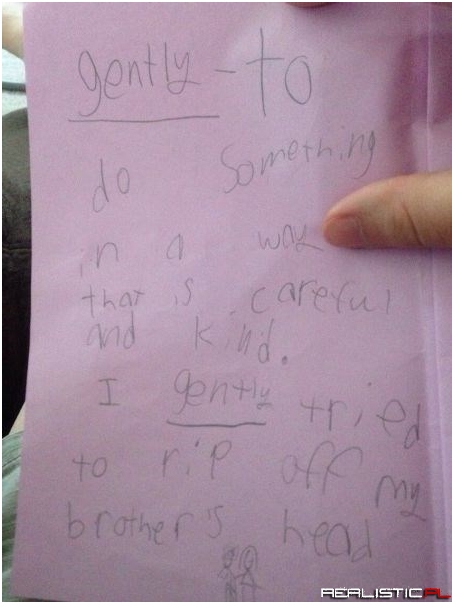 gently - to
do something
in a way
that is careful
and kind.
I gently tried
to rip off my
brother's head
REALISTICPL